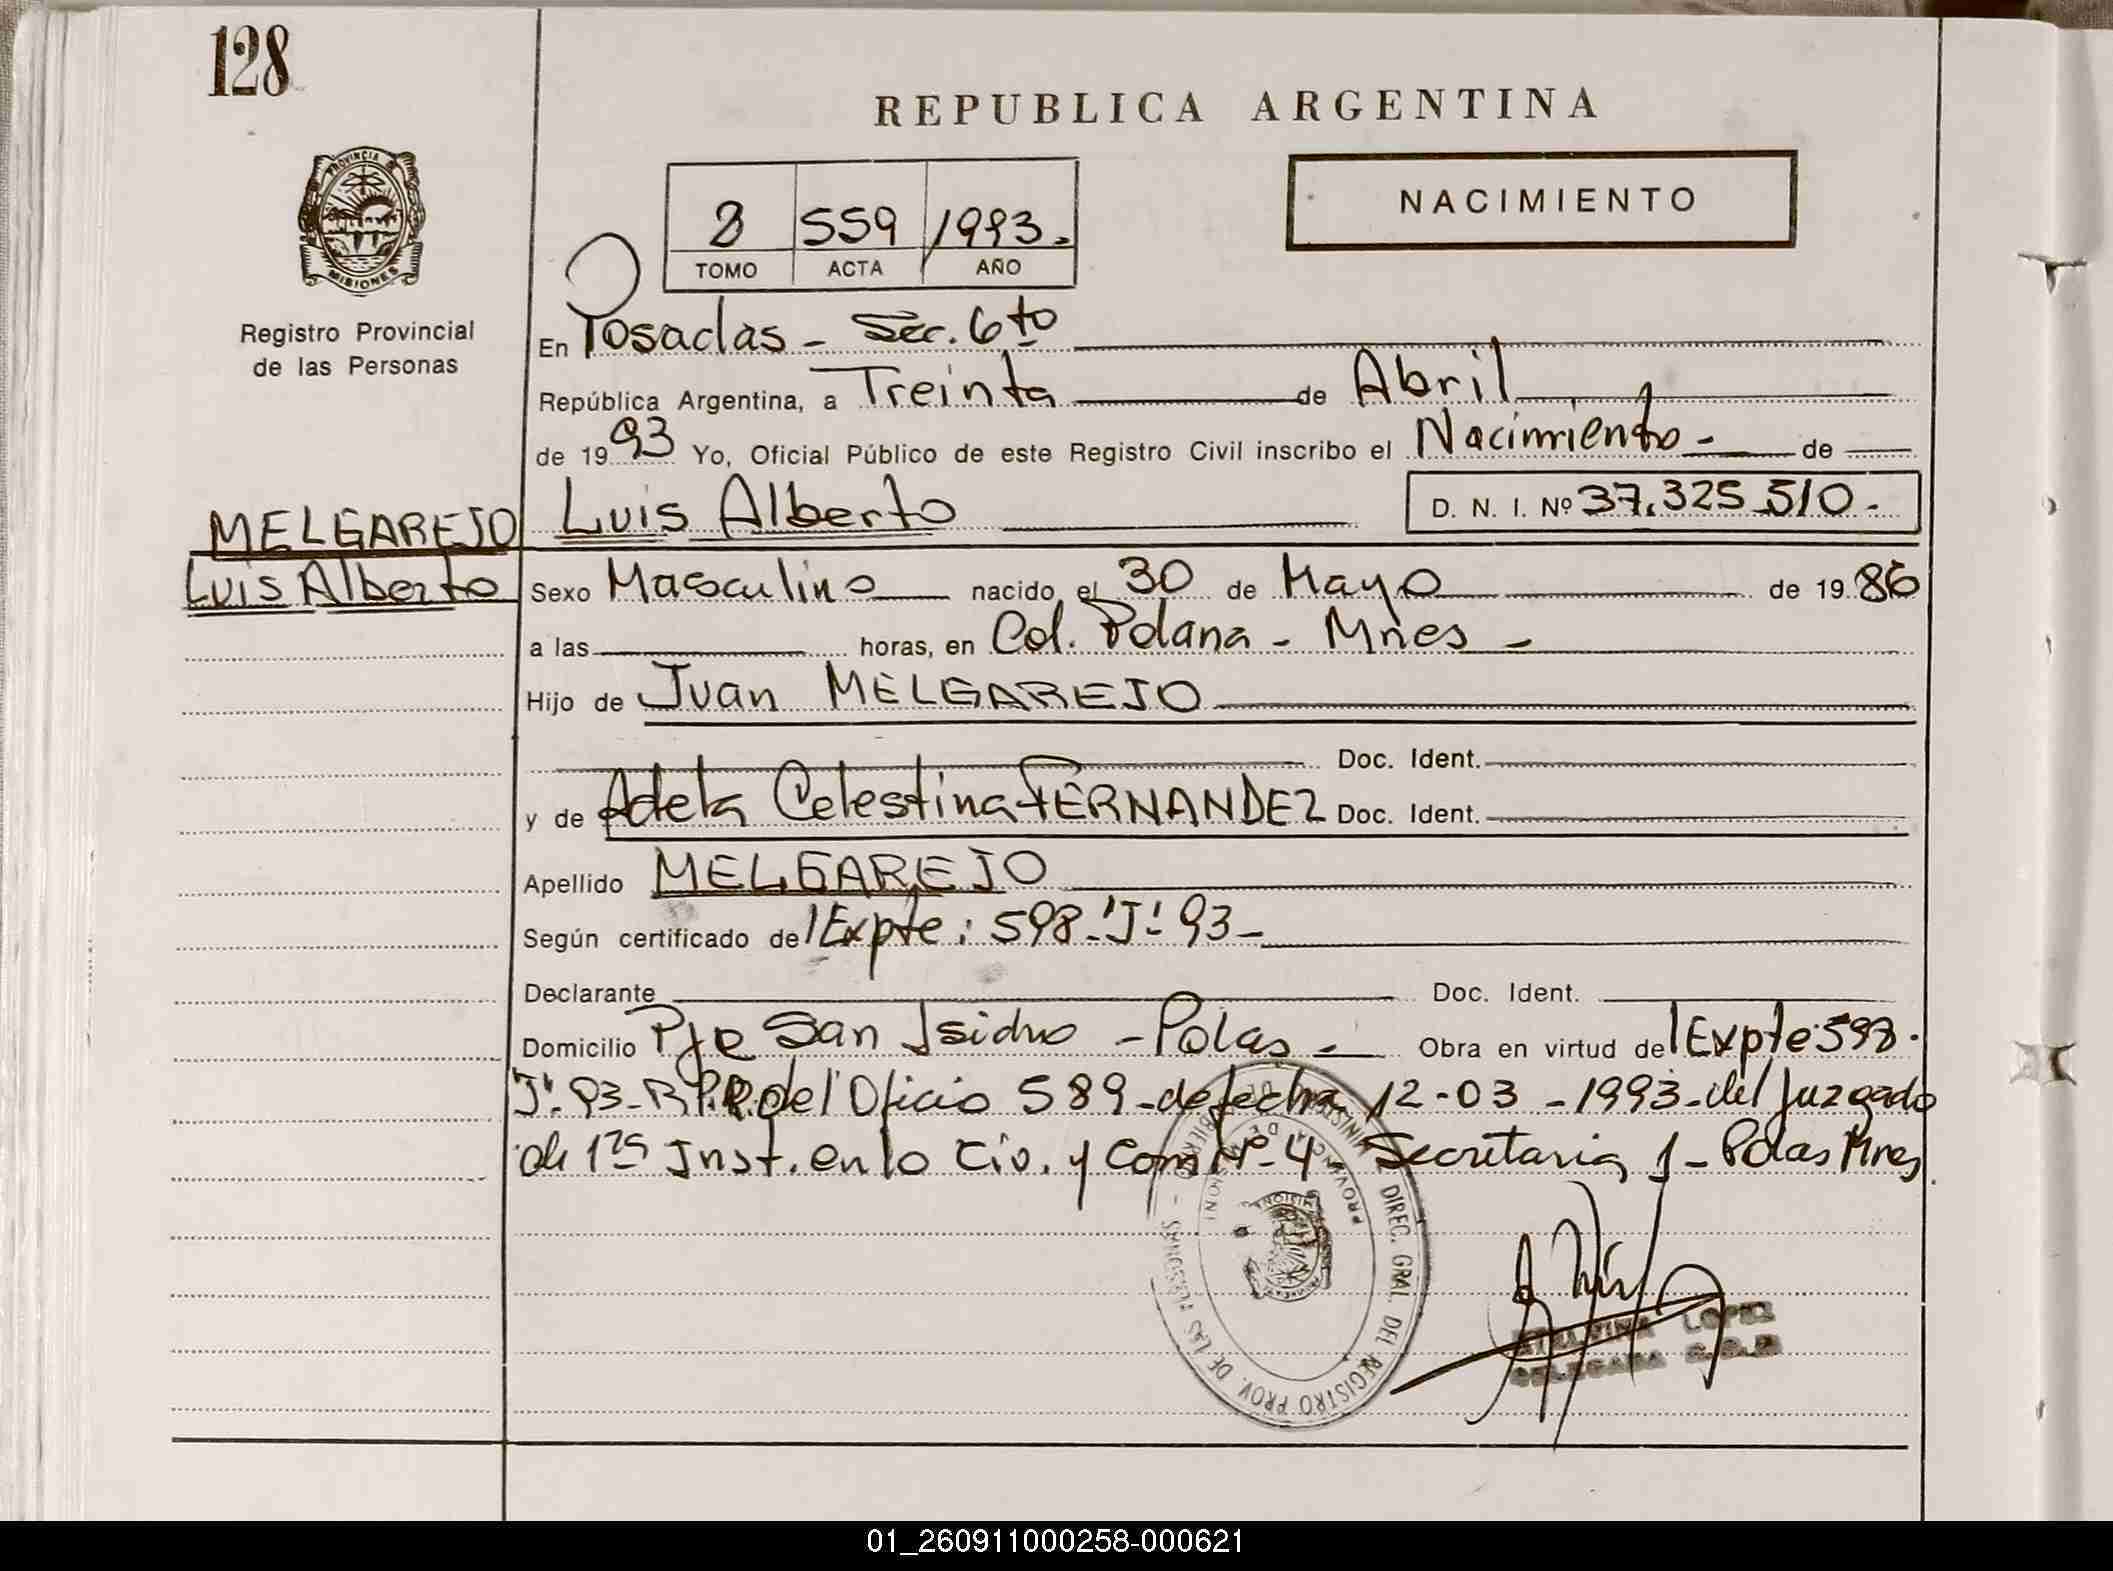 128
REPUBLICA ARGENTINA
PROVINCIA DE
MISIONES
Registro Provincial
de las Personas
8 559 1993.
TOMO ACTA AÑO
NACIMIENTO
En Posadas - Sec. 6to
República Argentina, a Treinta de Abril
de 1993 Yo, Oficial Público de este Registro Civil inscribo el Nacimiento - de
MELGAREJO Luis Alberto D. N. I. Nº 37.325.510.-
Luis Alberto Sexo Masculino nacido el 30 de Mayo de 1986
a las horas, en Col. Polana - Mnes -
Hijo de Juan MELGAREJO
Doc. Ident.
y de Adela Celestina FERNANDEZ Doc. Ident.
Apellido MELGAREJO
Según certificado de Expte: 598-"J"-93-
Declarante Doc. Ident.
Domicilio Pje San Isidro - Pdas - Obra en virtud de Expte 598-
"J"-93- del Oficio 589-de fecha 12-03-1993-del Juzgado
de 1ra Inst. en lo Civ. y Com Nº 4 Secretaria 1 - Pdas Mnes
DIREC. GRAL. DEL REGISTRO PROV. DE LAS PERSONAS -
PROVINCIA DE MISIONES
LOPEZ
01_260911000258-000621